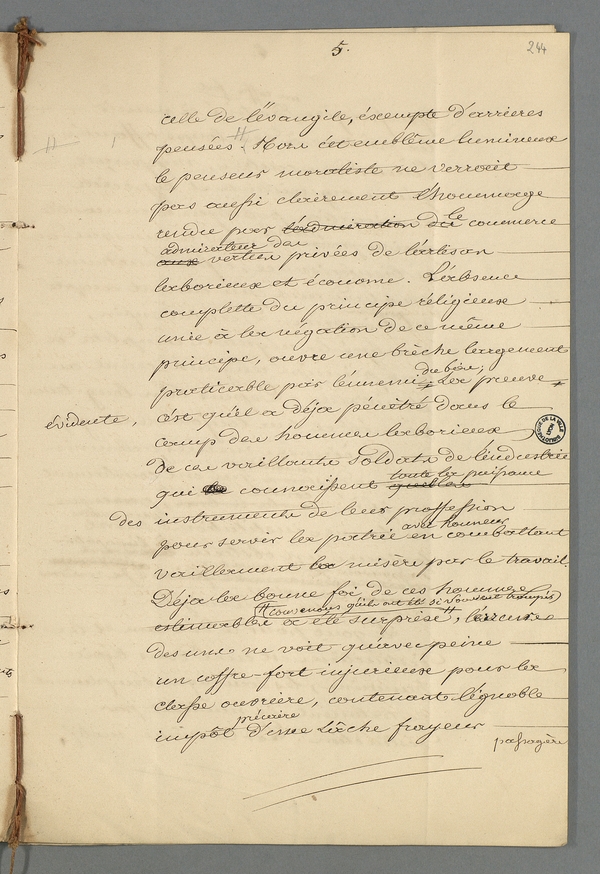 5.
244
celle de l'évangile, éxempte d'arrieres
pensées. # Hors cet emblême lumineux
le penseur moraliste ne verroit
pas aussi clairement l'hommage
rendu par l'admiration du le commerce
admirateur des
aux vertus privées de l'artisan
laborieux et économe. L'absence
complette du principe réligieux
unie à la négation de ce même
principe, ouvre une brèche largement
du bien;
praticable par l'énnemi La preuve
évidente, c'est qu'il a déja pénétré dans le
camp des hommes laborieux
de ces vaillants soldats de l'industrie
toute la puissance
qui connaissent quelles
des instruments de leur proffession
avec honneur
pour servir la patrie en combattant
vaillamment la misère par le travail.
Déja la bonne foi de ces hommes
# convenons qu'ils ont été si souvent trompés
estimables a été surprise #, l'ércurie
des uns ne voit qu'avec peine
un coffre-fort injurieux pour la
classe ouvriere, contenant l'ignoble
précaire
impôt d'une lâche frayeur
passagère